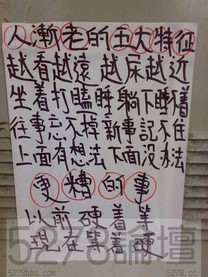 人漸老的五大特征
越看越遠 越尿越近
坐着打瞌睡躺下睡不着
往事忘不掉新事記不住
上面有想法 下面没办法
更糟的事
以前硬着等
現在等着硬
5278論壇
5278bbs.com
5278.cc